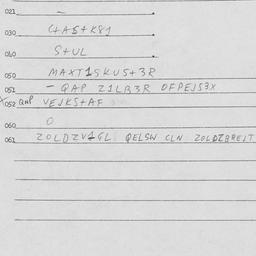 021 -
030 C+AST+K81
040 S+UL
050 MAXT1SKUS+3R
051 - QAP Z1LB3R OFPEJS3X
X052 QAP VEJKS+AF
060 O
061 ZOLDZV1GL QELSW CLN ZOLDZBREJT